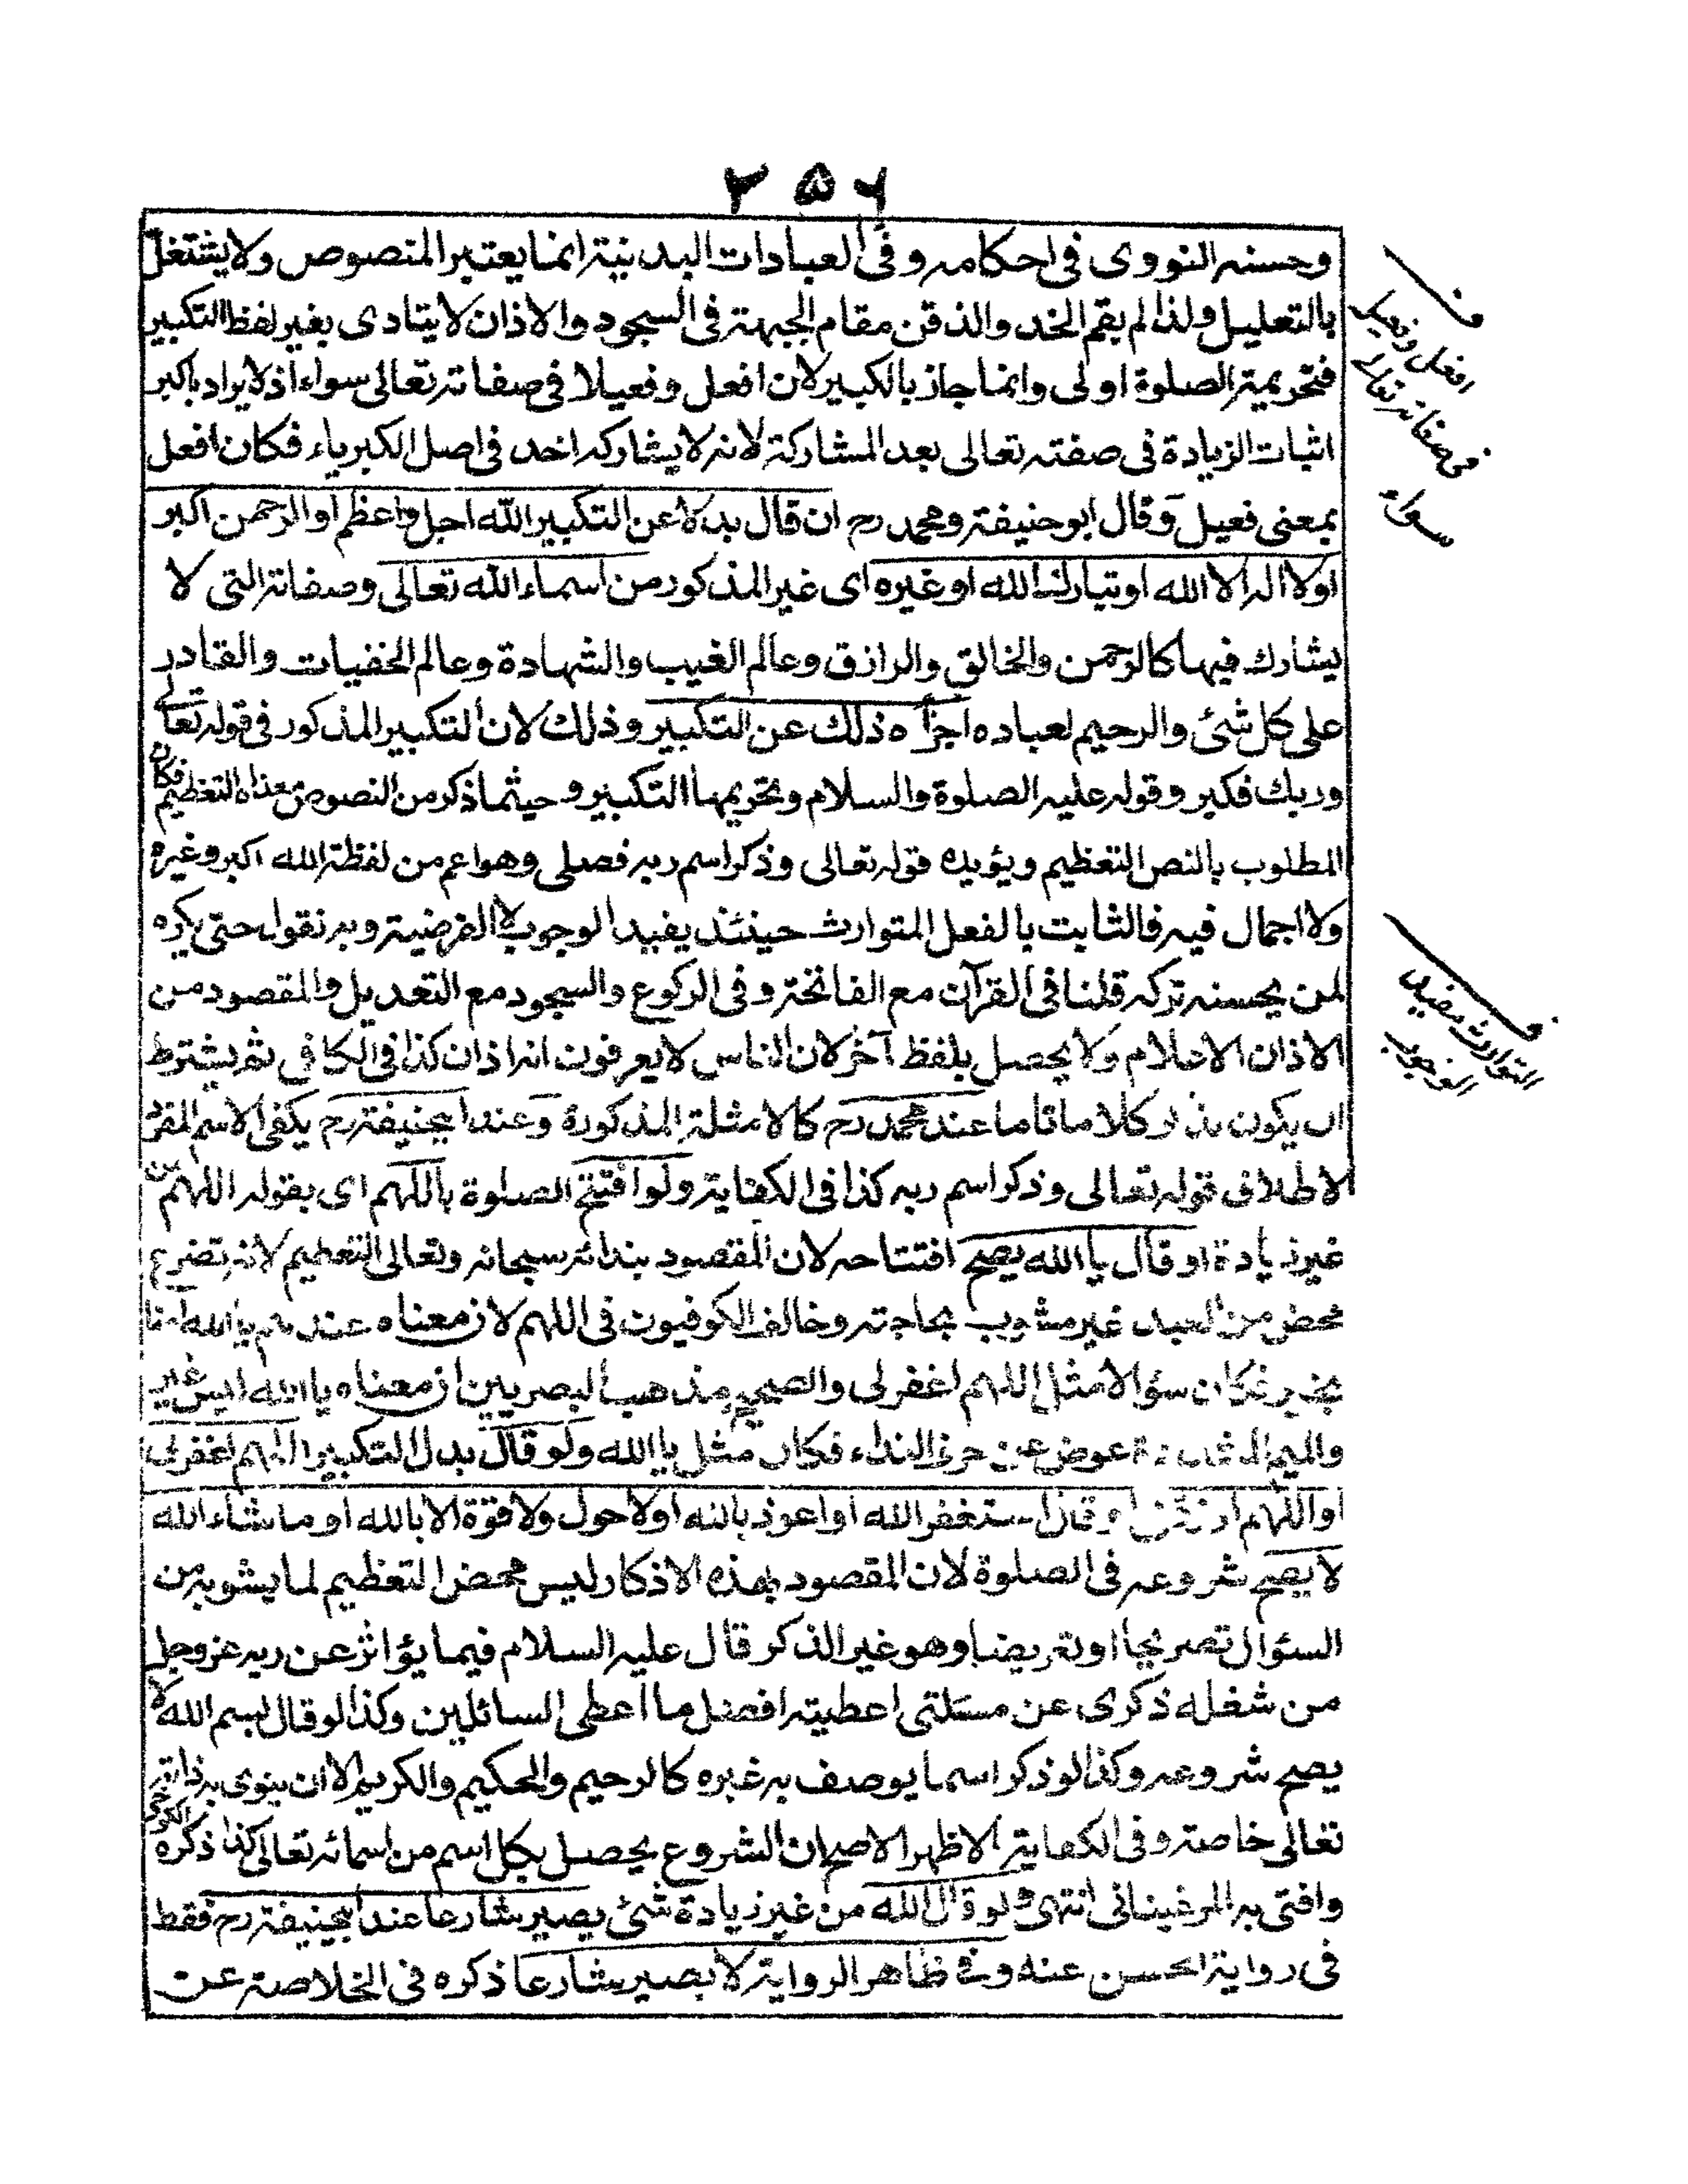 ٢٥٦
وحسنه النووى فى احكامه وفى العبادات البدنية انما يعتبر المنصوص ولا يشتغل
بالتعليل ولذا لم يقم الخد والذقن مقام الجبهة فى السجود والاذان لا يتادى بغير لفظ التكبير
فتحريمة الصلوة اولى وانما جاز بالكبير لان افعل وفعيلا فى صفاته تعالى سواء اذ لا يراد باكبر
اثبات الزيادة فى صفته تعالى بعد المشاركة لانه لا يشاركه احد فى اصل الكبرياء فكان افعل
بمعنى فعيل وقال ابو حنيفة ومحمد رح ان قال بدلا عن التكبير الله اجل واعظم او الرحمن اكبر
اولا اله الا الله او تبارك الله او غيره اى غير المذكور من اسماء الله تعالى وصفاته التى لا
يشارك فيها كالرحمن والخالق والرازق وعالم الغيب والشهادة وعالم الخفيات والقادر
على كل شئ والرحيم لعباده اجزأه ذلك عن التكبير وذلك لان التكبير المذكور فى قوله تعالى
وربك فكبر وقوله عليه الصلوة والسلام وتحريمها التكبير وحيثما ذكر من النصوص معناه التعظيم فكان
المطلوب بالنص التعظيم ويؤيده قوله تعالى وذكر اسم ربه فصلى وهو اعم من لفظة الله اكبر وغيره
ولا اجمال فيه فالثابت بالفعل المتوارث حينئذ يفيد الوجوب لا الفرضية وبه نقول حتى يكره
لمن يحسنه تركه قلنا فى القرآن مع الفاتحة وفى الركوع والسجود مع التعديل والمقصود من
الاذان الاعلام ولا يحصل بلفظ آخر لان الناس لا يعرفون انه اذان كذا فى الكافى ثم يشترط
ان يكون بذكر كلاما تاما عند محمد رح كالامثلة المذكورة وعند ابيحنيفة رح يكفى الاسم المفرد
لاطلاق قوله تعالى وذكر اسم ربه كذا فى الكفاية ولو افتتح الصلوة باللهم اى بقوله اللهم من
غير زيادة او قال يا الله يصح افتتاحه لان المقصود بندائه سبحانه وتعالى التعظيم لانه تضرع
محض من العبد غير مشوب بحاجته وخالف الكوفيون فى اللهم لان معناه عندهم يا الله امنا
بخير فكان سؤالا مثل اللهم اغفر لى والصحيح مذهب البصريين ان معناه يا الله ليس غير
والميم المشددة عوض عن حرف النداء فكان مثل يا الله ولو قال بدل التكبير اللهم اغفر لى
او اللهم ارزقنى او قال استغفر الله او اعوذ بالله اولا حول ولا قوة الا بالله او ما شاء الله
لا يصح شروعه فى الصلوة لان المقصود بهذه الاذكار ليس محض التعظيم لما يشوبه من
السؤال تصريحا او تعريضا وهو غير الذكر قال عليه السلام فيما يؤاثر عن ربه عز وجل
من شغله ذكرى عن مسئلتى اعطيته افضل ما اعطى السائلين وكذا لو قال بسم الله لا
يصح شروعه وكذا لو ذكر اسما يوصف به غيره كالرحيم والحكيم والكريم الا ان ينوى به ذاته
تعالى خاصة وفى الكفاية الاظهر الاصح ان الشروع يحصل بكل اسم من اسمائه تعالى كذا ذكره الكرخى
وافتى به المرغينانى انتهى ولو قال الله من غير زيادة شئ يصير شارعا عند ابيحنيفة رح فقط
فى رواية الحسن عنه وفى ظاهر الرواية لا يصير شارعا ذكره فى الخلاصة عن
ف
افعل وفعيل
فى صفاته تعالى
سواء
ف
التوارث مفيد
الوجوب